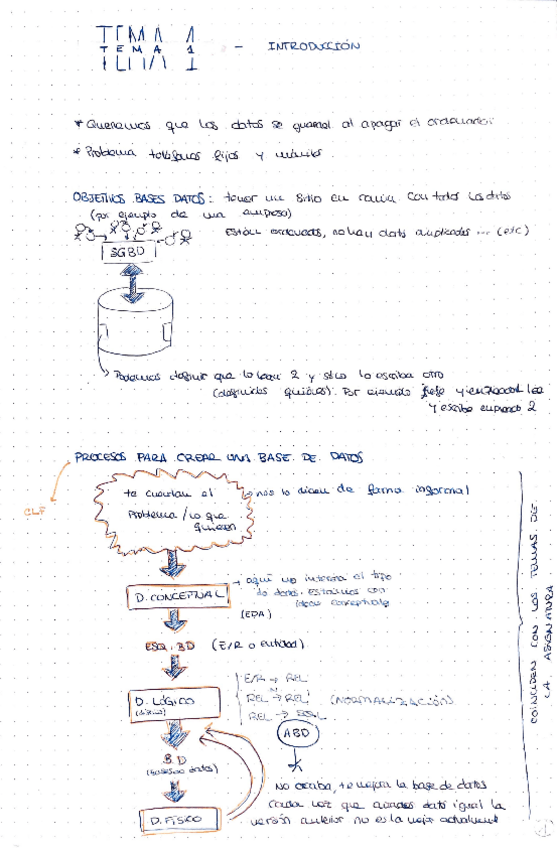 TEMA 1 - INTRODUCCIÓN
* Queremos que los datos se guarden al apagar el ordenador
* Problema teléfonos fijos y móviles.
OBJETIVOS BASES DATOS: tener un sitio en común con todos los datos
(por ejemplo de una empresa)
Están ordenados, no hay datos duplicados ... (etc)
SGBD
Podemos definir que lo lean 2 y solo lo escriba otro
(definidos quiénes). Por ejemplo jefe y empleado1 lee
y escribe empleado 2
PROCESOS PARA CREAR UNA BASE DE DATOS
te cuentan el
Problema / lo que
quieren
nos lo dicen de forma informal
D. CONCEPTUAL
aquí no interesa el tipo
de datos. estamos con
ideas conceptuales
ESQ. BD (E/R o entidad)
D. LÓGICO
E/R → REL
REL → REL (NORMALIZACIÓN)
REL → SQL
ABD
B.D
D. FÍSICO
No acaba, te mejora la base de datos
cada vez que
dato igual la
versión anterior no es la mejor actualment
COINCIDEN CON LOS TEMAS DE
LA ASIGNATURA